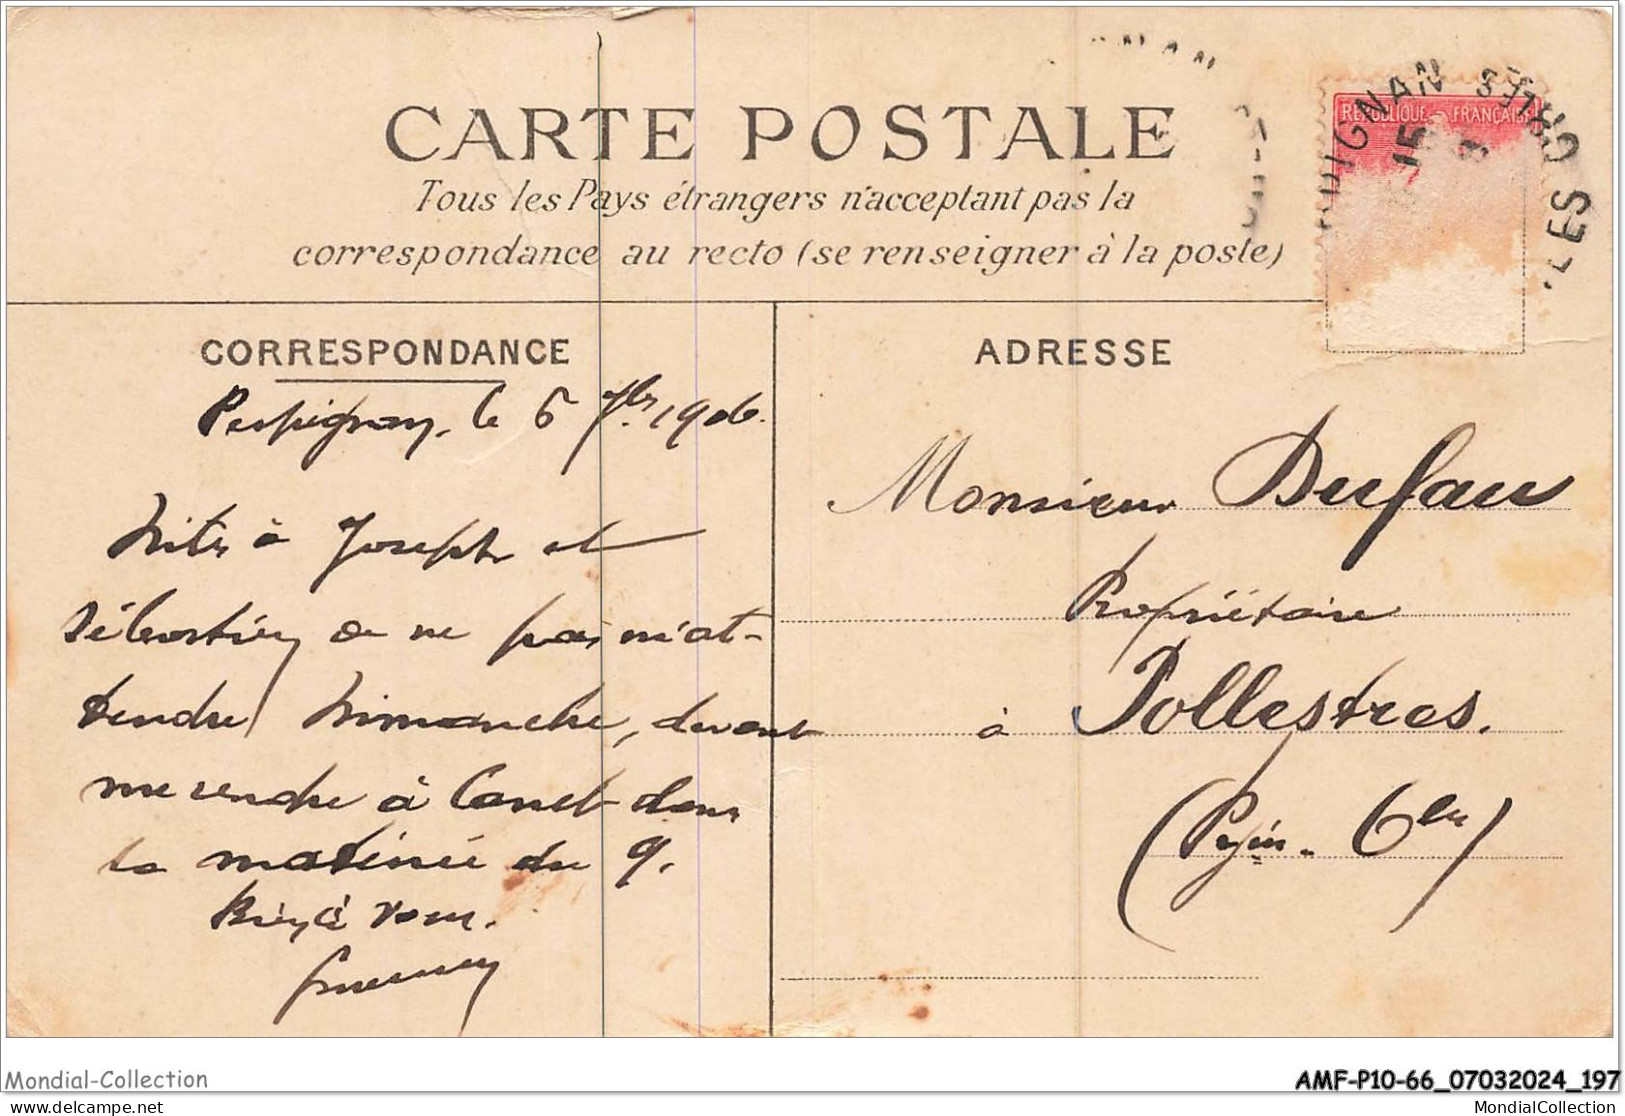 CARTE POSTALE
Tous les Pays étrangers n'acceptant pas la
correspondance au recto (se renseigner à la poste)
RÉPUBLIQUE FRANÇAISE
PIGNAN
15
CORRESPONDANCE
ADRESSE
Perpignan, le 6 7bre 1906.
Dites à Joseph et
Sébastien de ne pas m'at-
tendre Dimanche, devant
me rendre à Canet dans
la matinée du 9.
Bien à vous.
Monsieur Dufau
Propriétaire
à Pollestres.
(Pyrén. Oles)
Mondial-Collection
AMF-P10-66_07032024_197
www.mondial-collection.com
MondialCollection